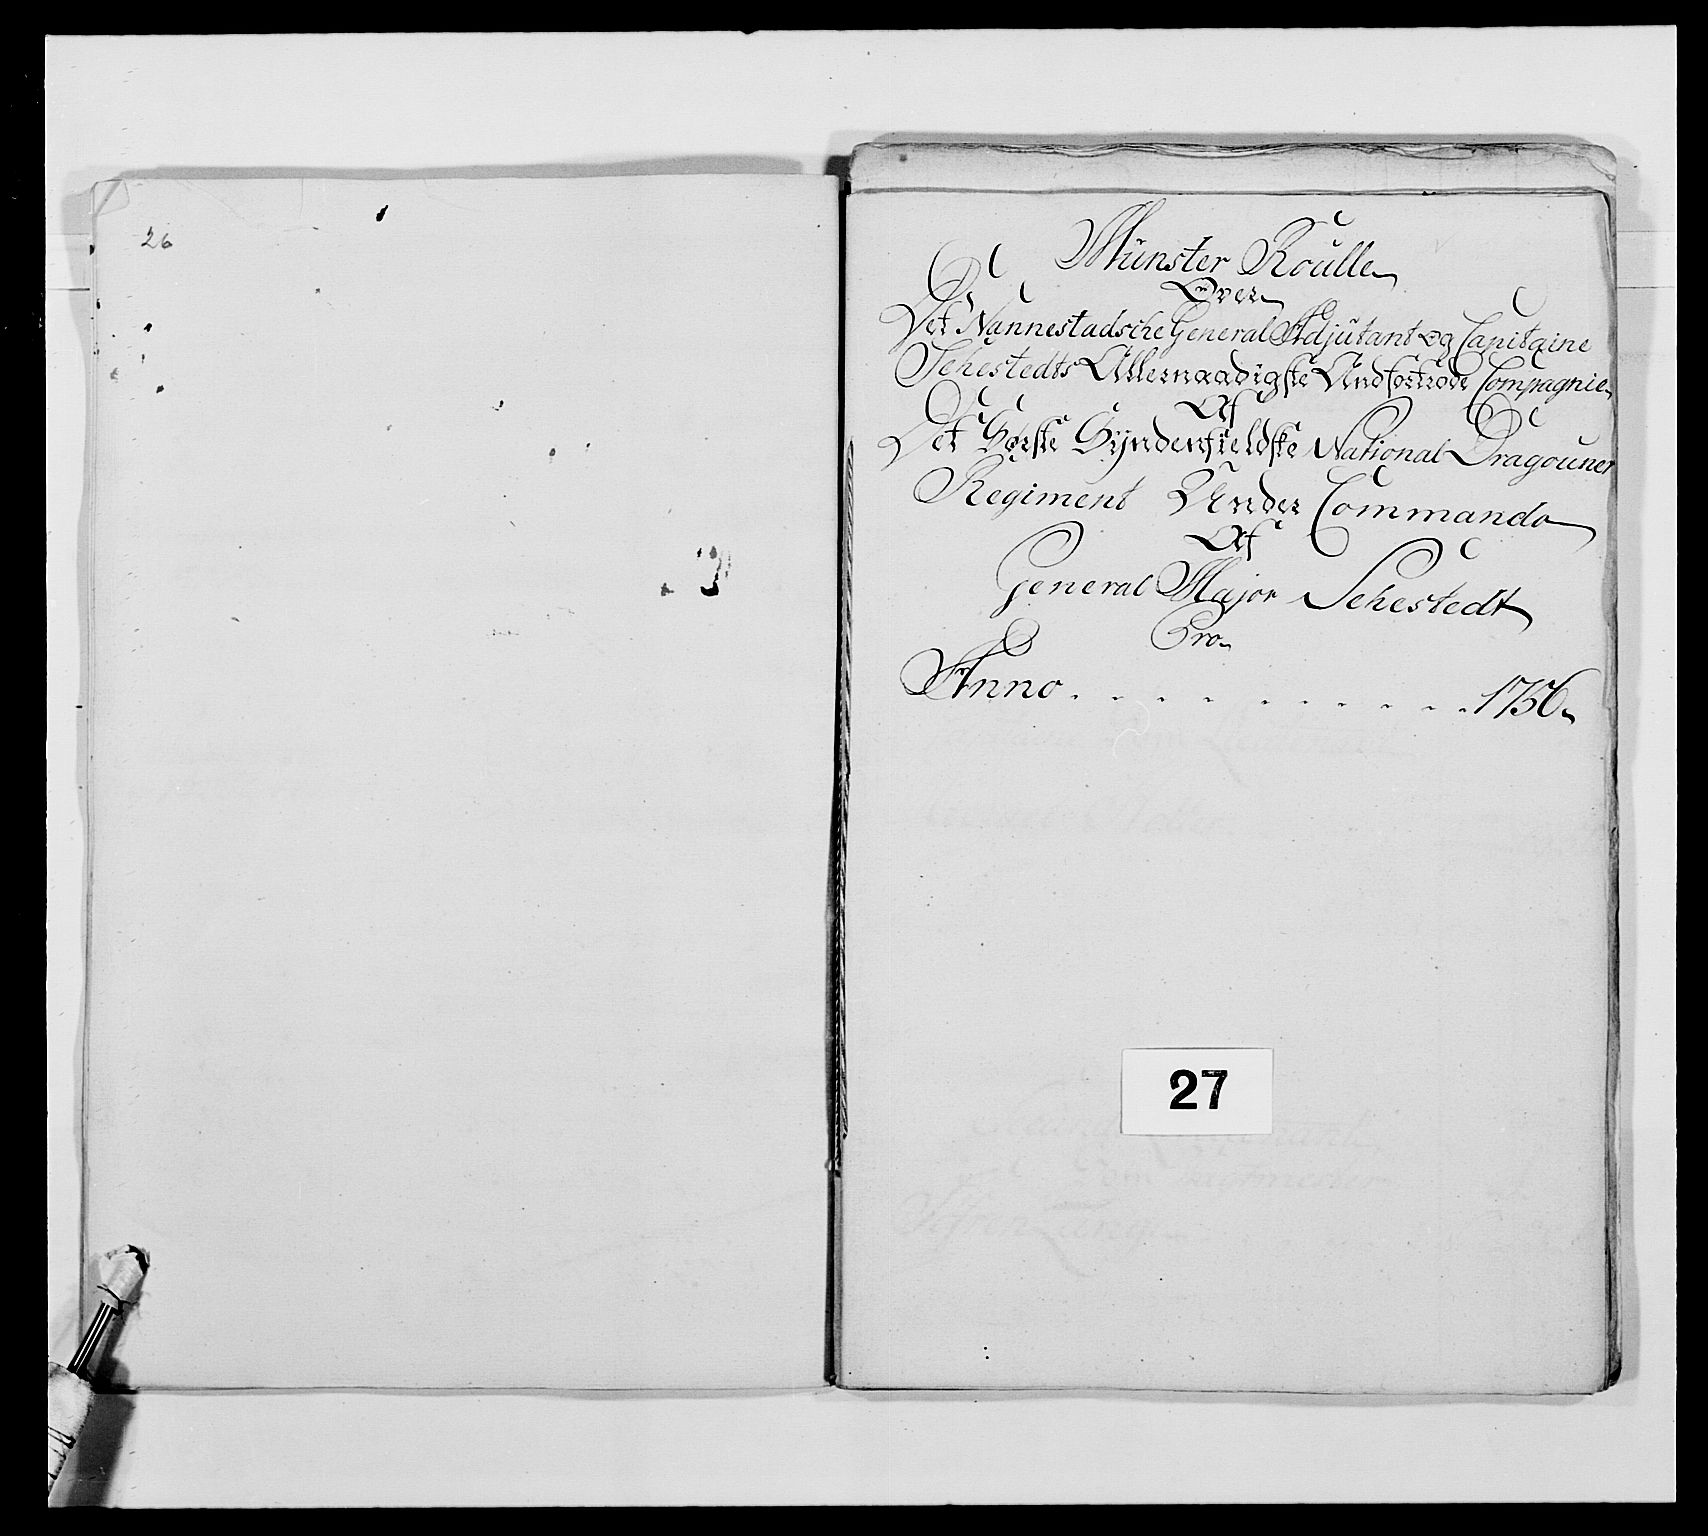 26
Münster Roulle
Over
Det Nannestadsche General Adjütant og Capitaine
Sehestedts Allernaadigste Andfortrode Compagnie
Af
Det Norske Syndenfieldske National Dragouner
Regiment Under Commando
Af
General Major Sehestedt
Pro
Anno . . . . . . . . . . 1756
27